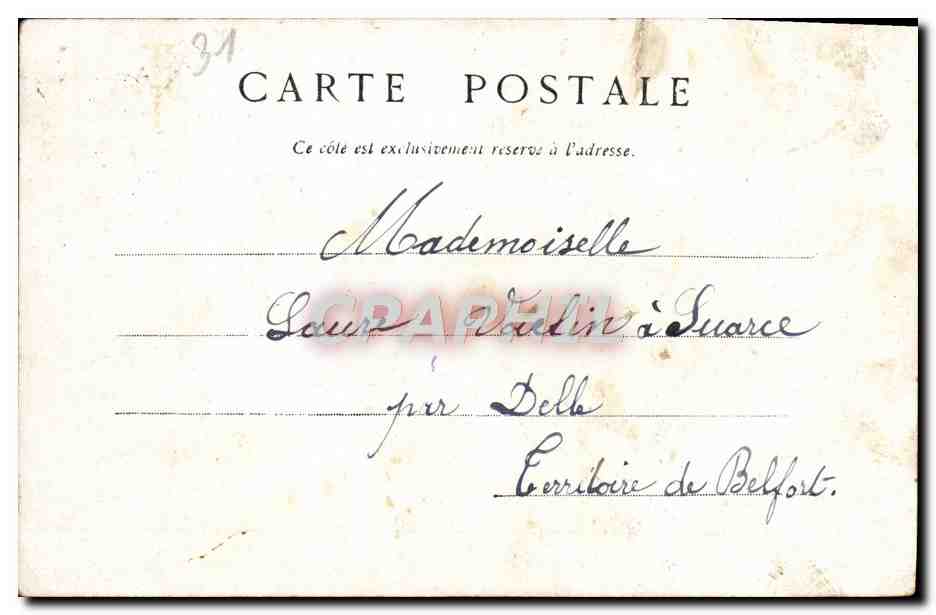 31
CARTE POSTALE
Ce côté est exclusivement réservé à l'adresse.
Mademoiselle
CPARAMA
Laure Voelin à Suarce
par Delle
Territoire de Belfort.